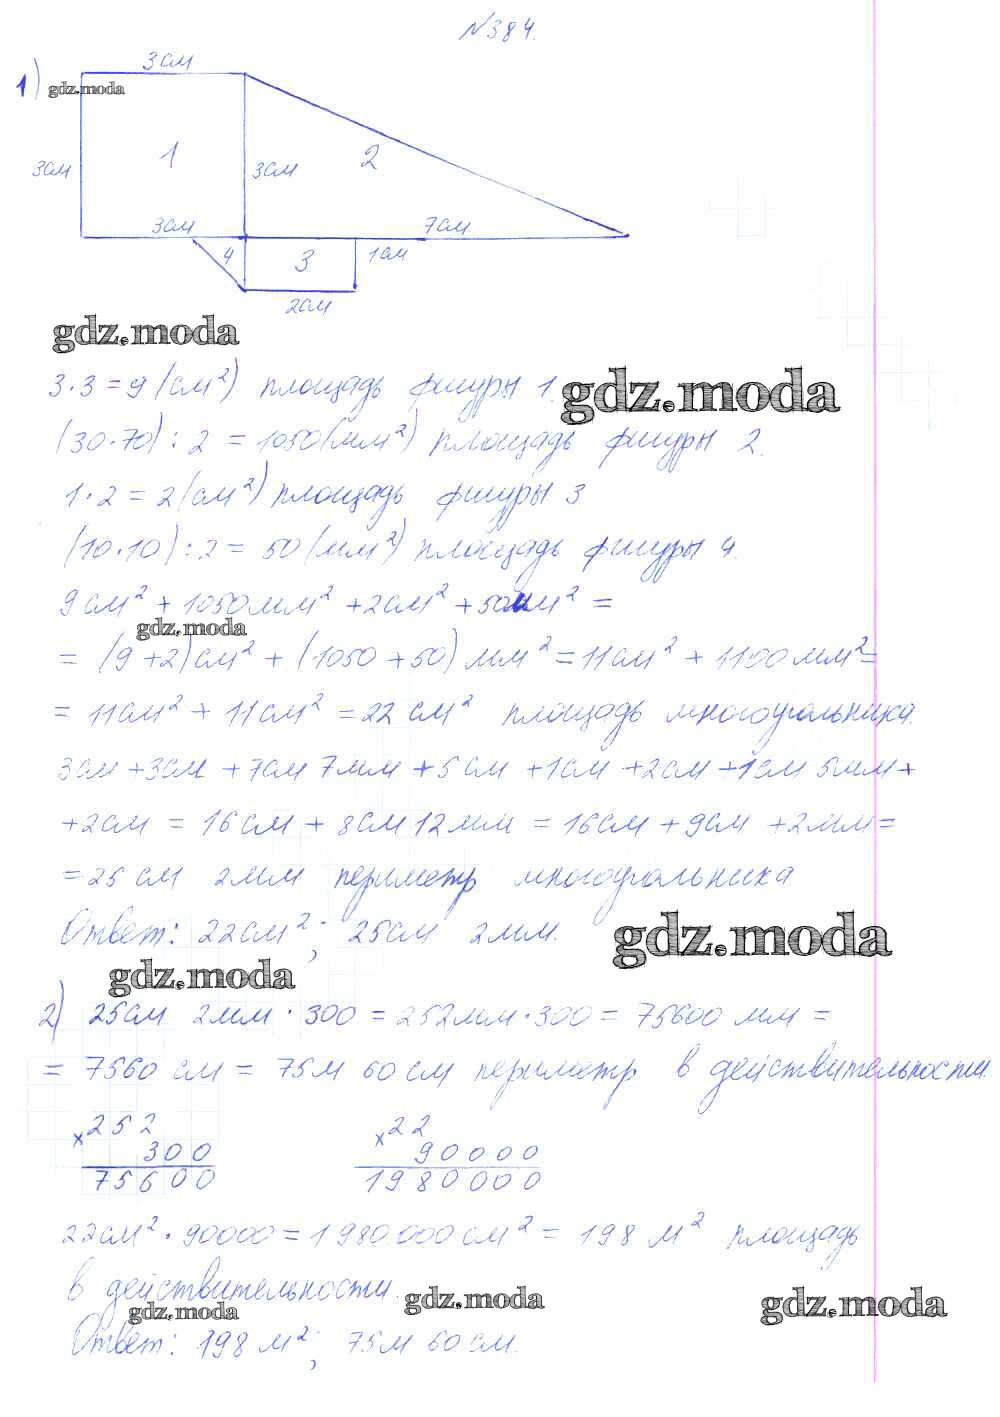 №384.
1)
gdz.moda
3см
3см
1
3см
2
3см
7см
4
3
1см
2см
gdz.moda
3·3=9(см²) площадь фигуры 1.
gdz.moda
(30·70):2=1050(мм²) площадь фигуры 2.
1·2=2(см²) площадь фигуры 3
(10·10):2=50(мм²) площадь фигуры 4.
9см²+1050мм²+2см²+50мм²=
gdz.moda
=(9+2)см²+(1050+50)мм²=11см²+1100мм²=
=11см²+11см²=22см² площадь многоугольника.
3см+3см+7см 7мм+5см+1см+2см+1см 5мм+
+2см=16см+8см12мм=16см+9см+2мм=
=25см 2мм периметр многоугольника
Ответ: 22см²; 25см 2мм.
gdz.moda
gdz.moda
2) 25см 2мм·300=252мм·300=75600мм=
=7560см=75м 60см периметр в действительности.
×252
300
75600
×22
90000
1980000
22см²·90000=1980000см²=198м² площадь
в действительности.
gdz.moda
gdz.moda
gdz.moda
Ответ: 198м²; 75м 60см.